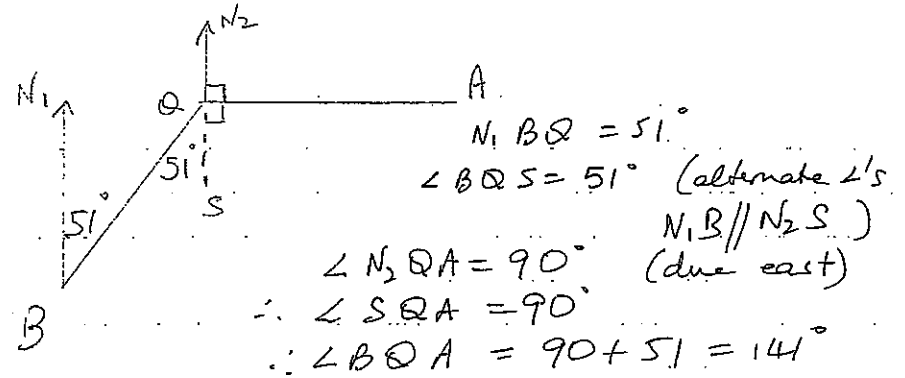 N₂
N₁
Q
A
51°
51°
S
B
N₁BQ = 51°
∠BQS = 51° (alternate ∠'s
N₁B // N₂S)
∠N₂QA = 90° (due east)
∴ ∠SQA = 90°
∴ ∠BQA = 90 + 51 = 141°